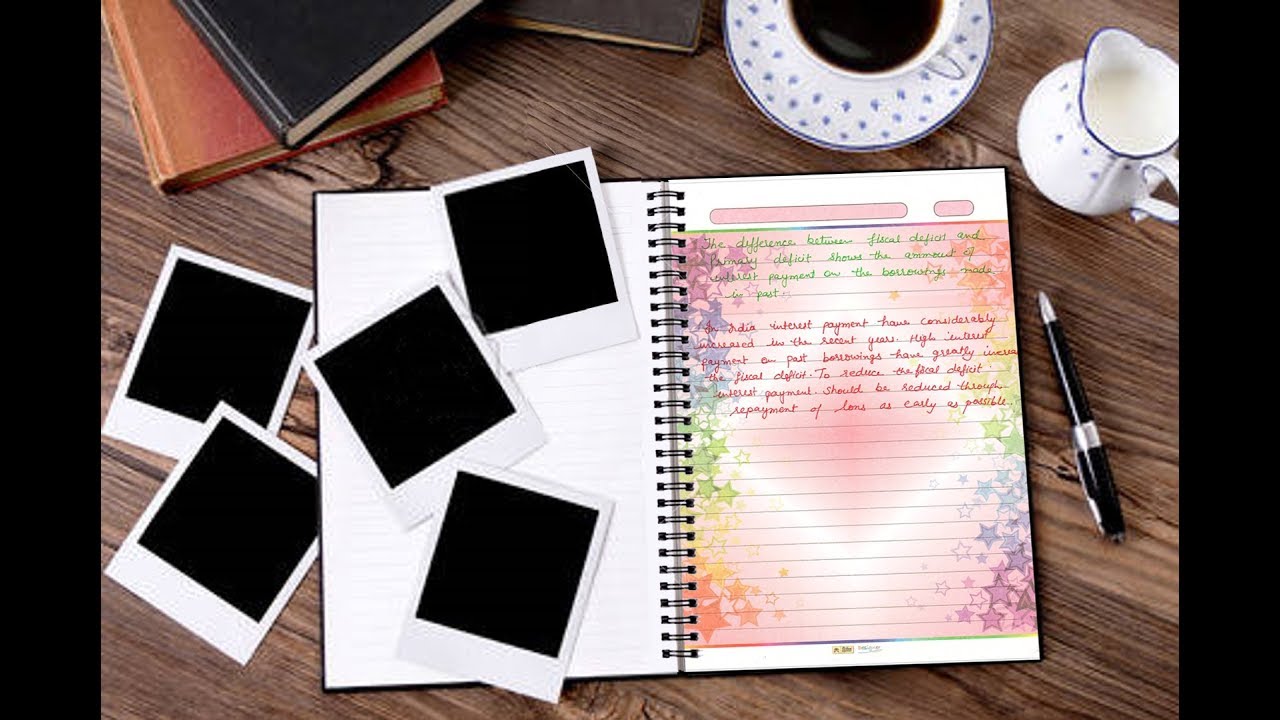 The difference between fiscal deficit and
Primary deficit shows the ammount of
interest payment on the borrowings made
in past.
In India interest payment have considerably
increased in the recent years. High interest
payment on past borrowings have greatly increas
the fiscal deficit. To reduce the fiscal deficit
interest payment. Should be reduced through
repayment of lons as early as possible.